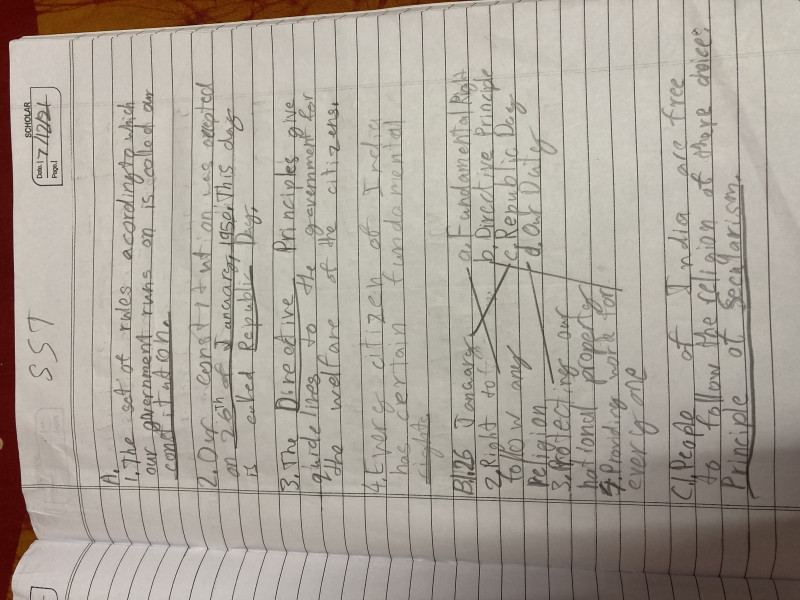 SCHOLAR
Date: 7/12/21
Page:
SST
A.
1. The set of rules according to which
our government runs on is called our
constitution.
2. Our constitution was accepted
on 26th of January, 1950. This day
is called Republic Day.
3. The Directive Principles give
guidelines to the government for
the welfare of the citizens.
4. Every citizen of India
has certain fundamental
rights.
B) 1. 26 January a. Fundamental Right
2. Right to b. Directive Principle
follow any c. Republic Day
religion d. Our Duty
3. Protecting our
national property
4. Providing work for
everyone
C) 1. People of India are free
to follow the religion of there choice:
Principle of Secularism.